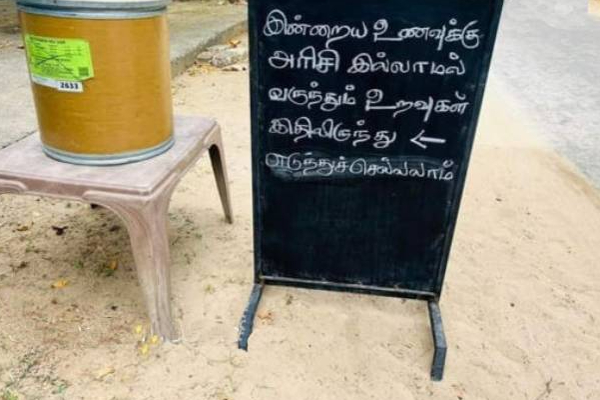 2633
இன்றைய உணவுக்கு
அரிசி இல்லாமல்
வருந்தும் உறவுகள்
இதிலிருந்து ←
எடுத்துச்செல்லலாம்